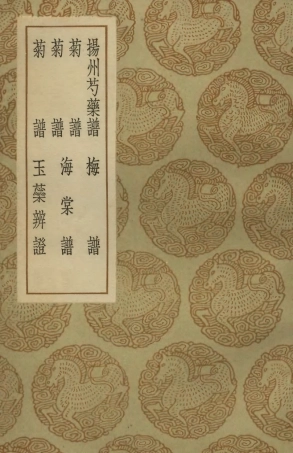 揚州芍藥譜 梅譜
菊譜
菊譜 海棠譜
菊譜 玉蘂辨證